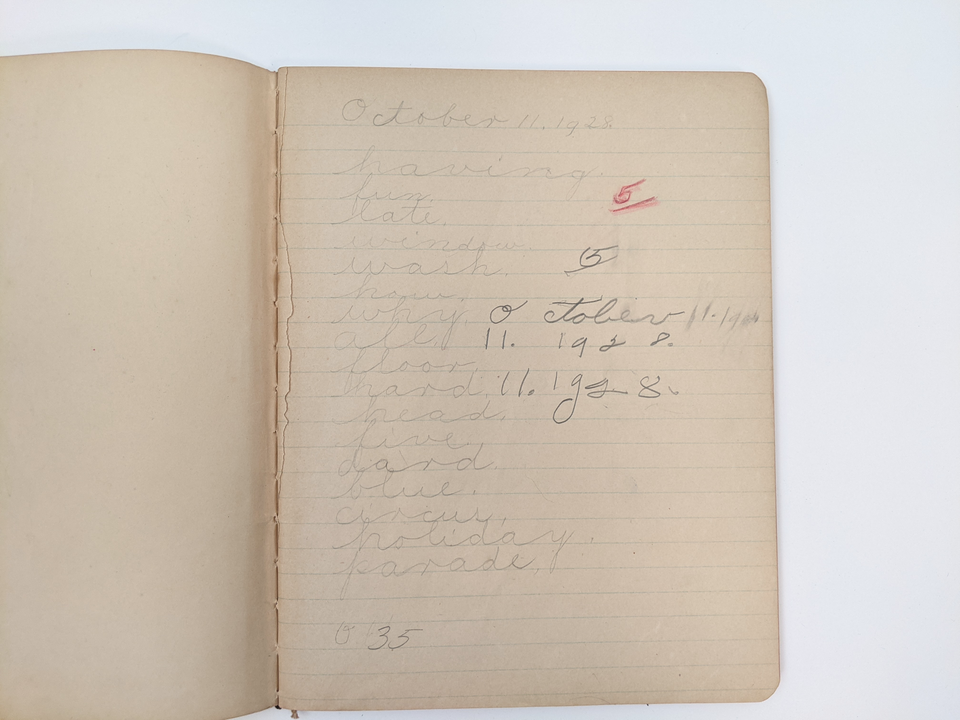 October 11. 1928.
having.
fun.
5
late.
window.
wash. 5
how.
why. October 11. 19
all. 11. 1928.
floor.
hard. 11. 1928.
head.
five.
card.
blue.
circus.
holiday.
parade.
35